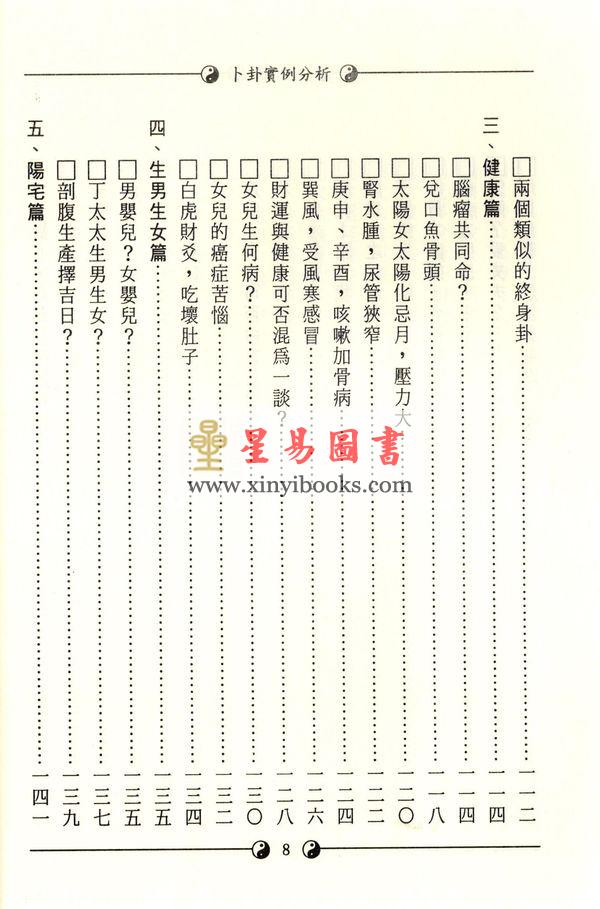 卜卦實例分析
□兩個類似的終身卦…………一一二
三、健康篇…………一一四
□腦瘤共同命？…………一一四
□兌口魚骨頭…………一一八
□太陽女太陽化忌月，壓力大…………一二〇
□腎水腫，尿管狹窄…………一二二
□庚申、辛酉，咳嗽加骨病…………一二四
□巽風，受風寒感冒…………一二六
□財運與健康可否混爲一談？…………一二八
□女兒生何病？…………一三〇
□女兒的癌症苦惱…………一三二
□白虎財爻，吃壞肚子…………一三四
四、生男生女篇…………一三五
□男嬰兒？女嬰兒？…………一三五
□丁太太生男生女？…………一三七
□剖腹生產擇吉日？…………一三九
五、陽宅篇…………一四一
星易圖書
www.xinyibooks.com
8